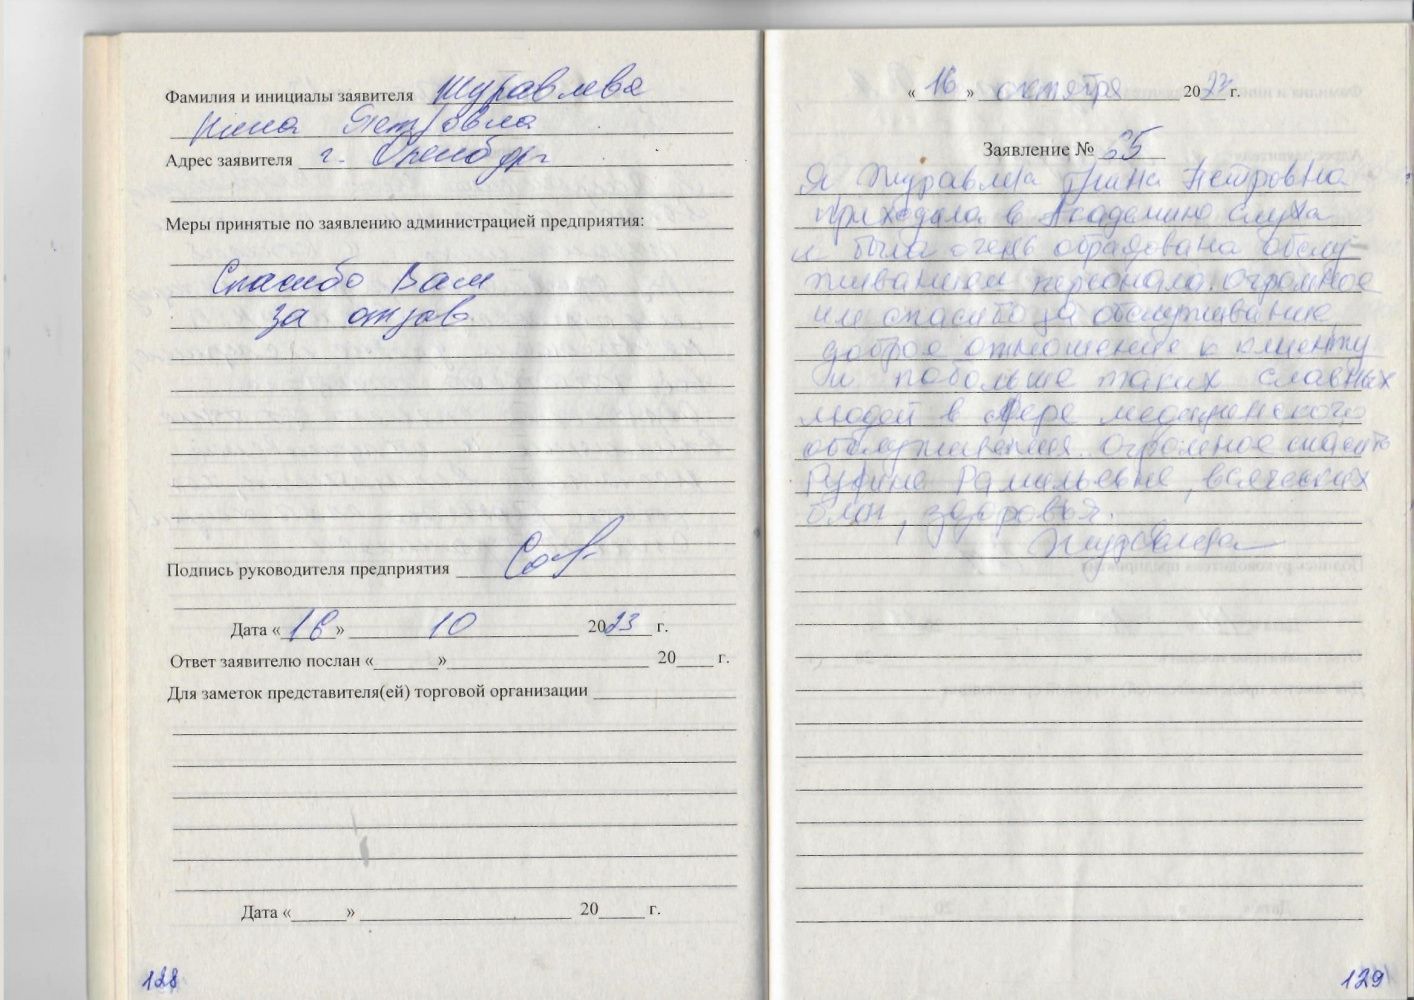 Фамилия и инициалы заявителя Журавлева
Нина Петровна
Адрес заявителя г. Оренбург
Меры принятые по заявлению администрацией предприятия:
Спасибо Вам
за отзыв
Подпись руководителя предприятия
Дата «16» 10 2023 г.
Ответ заявителю послан «______»____________ 20____ г.
Для заметок представителя(ей) торговой организации
Дата «______» ____________ 20_____ г.
128
«16» октября 2023 г.
Заявление № 65
Я Журавлева Нина Петровна
приходила в Академию слуха
и была очень обрадована обслу-
живанием персонала. Огромное
им спасибо за обслуживание,
доброе отношение к клиенту
и побольше таких славных
людей в сфере медицинского
обслуживания. Огромное спасибо
Рубине Рамильевне, всяческих
благ, здоровья.
Журавлева
129